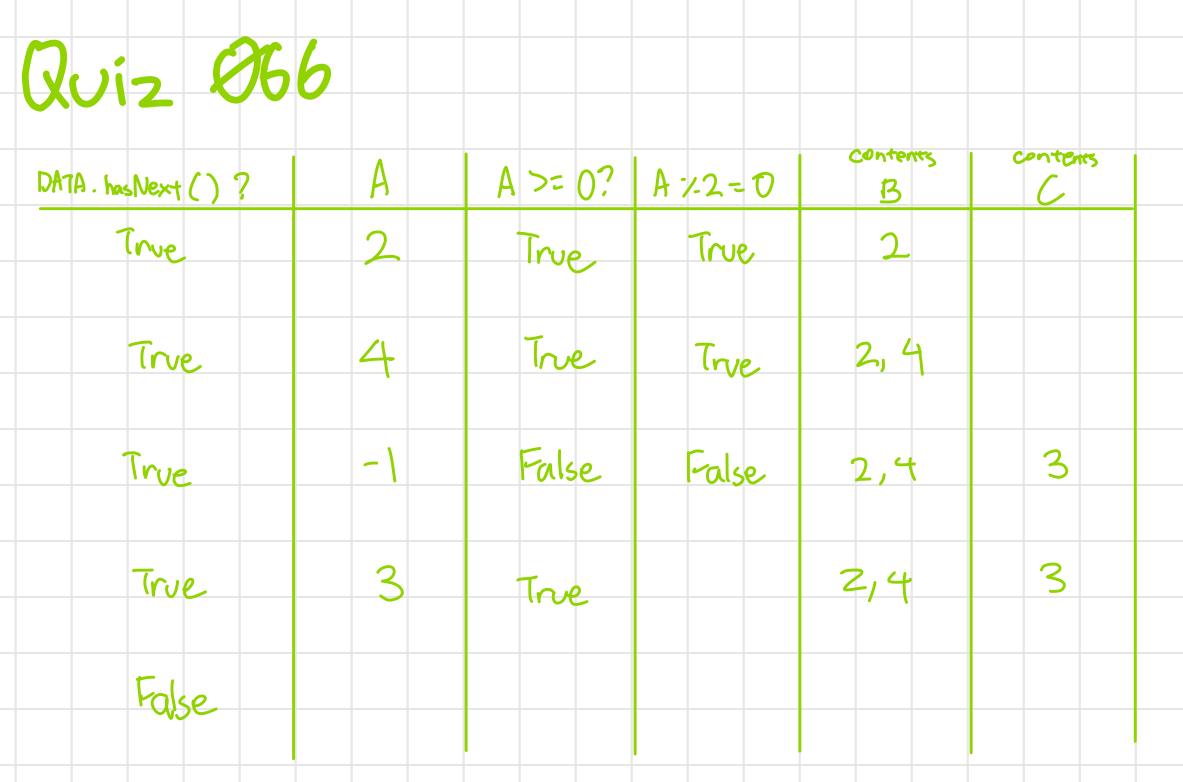 Quiz 066
DATA.hasNext() ? A A >= 0? A %2 = 0 contents B contents C
True 2 True True 2
True 4 True True 2, 4
True -1 False False 2, 4 3
True 3 True 2, 4 3
False